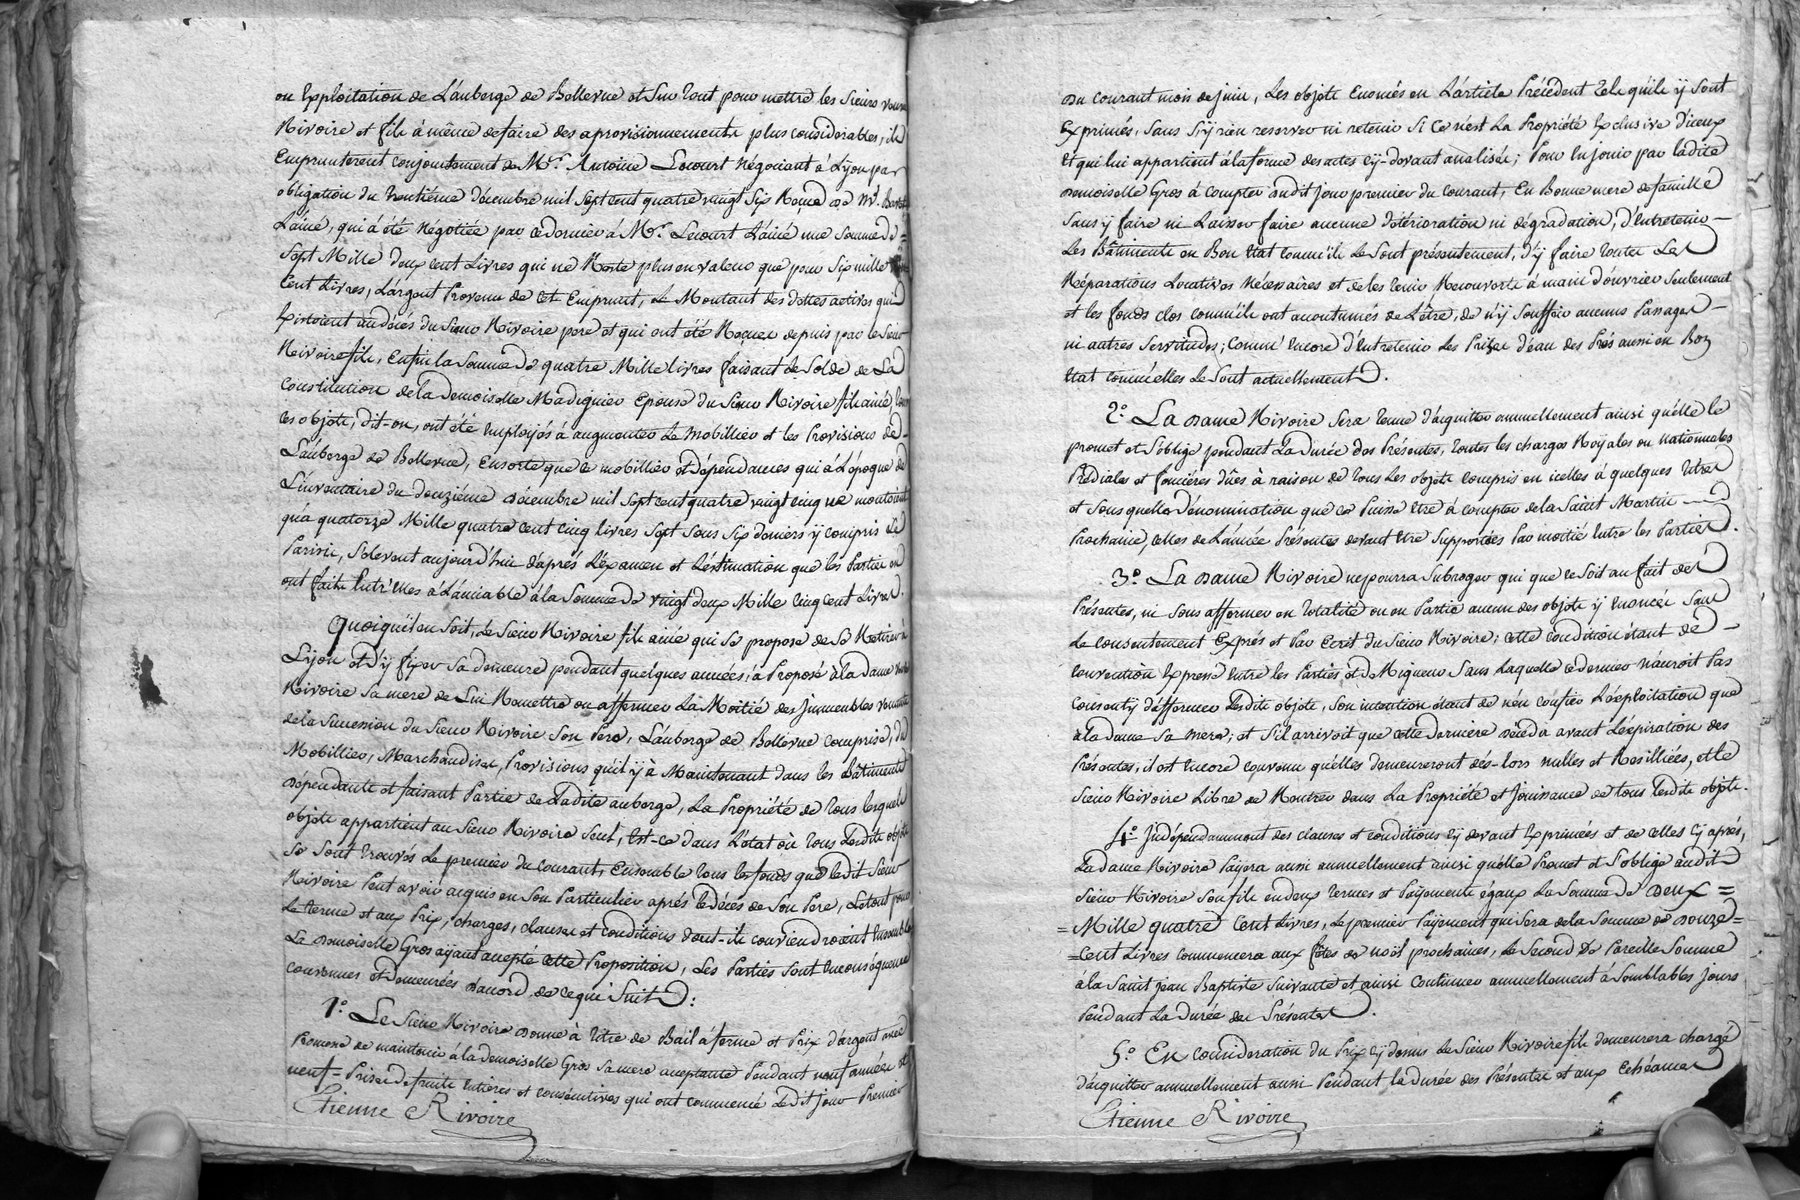 ou Exploitation de L'auberge de Bellevue et sur tout pour mettre les sieurs veuve
Rivoire et fils à même de faire des aprovisionnements plus considerables, ils
Emprunterent conjointement de Mr. Antoine Lecourt Négociant à Lyon par
obligation du trentiéme décembre mil sept cent quatre vingt six Reçue de Mr.
L'ainé, qui a été négotiée par ce dernier à Mr. Lecourt L'ainé une somme de =
Sept Mille deux cent Livres qui ne Reste plus en valeur que pour six mille
Cent Livres, L'argent Provenu de cet Emprunt, Le Montant des dettes actives qui
Existoient au décés du sieur Rivoire pere et qui ont été Reçues depuis par le sieur
Rivoire fils, Enfin la somme de quatre Mille livres faisant le solde de La
Constitution de la demoiselle Madignier Epouse du sieur Rivoire fils ainé, tous
ces objets, dit-on, ont été employés à augmenter Le Mobillier et les Provisions de
L'auberge de Bellevue, Ensorte que le mobillier et dépendances qui à L'époque de
L'inventaire du douziéme décembre mil sept cent quatre vingt cinq ne montoient
qu'a quatorze Mille quatre cent cinq livres sept sous six deniers y compris le
Parisis, s'elevent aujourd'hui d'aprés L'éxamen et L'éstimation que les Parties en
ont faite Entr'elles à L'amiable à la somme de vingt deux Mille cinq cent Livres.
Quoiqu'il en soit, Le sieur Rivoire fils ainé qui se propose de se Retirer à
Lyon et d'y fixer sa demeure pendant quelques années, a Proposé à la dame veuve
Rivoire sa mere de Lui Remettre ou affermer La Moitié des Immeubles venants
de la succession du sieur Rivoire son Pere, L'auberge de Bellevue comprise, du
Mobillier, Marchandises, Provisions qu'il y à Maintenant dans les Bâtiments
dépendants et faisant Partie de Ladite auberge, La Propriété de tous lesquels
objets appartient au sieur Rivoire seul, Est-ce dans L'etat où tous Lesdits objets
se sont trouvés Le premier du courant, Ensemble tous les fonds que ledit sieur
Rivoire Peut avoir acquis en son Particulier aprés le décés de son Pere, Le tout pour
Le terme et aux Prix, charges, clauses et conditions dont-ils conviendroient Ensemble
La demoiselle Gros ayant accepté cette Proposition, Les Parties sont en conséquence
convenues et demeurées d'accord de ce qui Suit :
1.° Le Sieur Rivoire donne à titre de Bail à ferme et Prix d'argent avec
Promesse de maintenir à la demoiselle Gros sa mere acceptante Pendant neuf années et
neuf = Prises de fruits entieres et consécutives qui ont commencé Ledit jour Premier
Etienne Rivoire
du courant mois de juin, Les objets Enoncés en L'article Précédent tels qu'ils y sont
Exprimés, sans s'y rien reserver ni retenir si Ce n'est La Propriété Exclusive d'iceux
Et qui lui appartient à la forme des actes cy-devant analisés; Pour En jouir par ladite
demoiselle Gros à compter dudit jour premier du courant, En Bonne mere de famille
sans y faire ni Laisser faire aucune détérioration ni dégradation, d'Entretenir —
Les Bâtiments en Bon Etat comm'ils Le sont présentement, d'y faire toutes Les
Réparations Locatives Nécessaires et de les tenir Recouverts à main d'ouvrier seulement
et les fonds clos comm'ils ont accoutumés de L'être, de n'y souffrir aucuns Passages —
ni autres servitudes; Comm' Encore d'Entretenir Les Prises d'eau des Prés aussi en Bon
Etat comm'elles Le sont actuellement.
2.° La dame Rivoire sera tenue d'acquitter annuellement ainsi qu'elle le
promet et s'oblige pendant La durée des Présentes, toutes les charges Royales ou nationnales
Prédiales et foncières dûes à raison de tous Les objets compris en icelles à quelques titres
et sous quelles dénomination que ce Puisse être à compter de la Saint Martin —
Prochaine, celles de L'année Présentes devant Etre supportées Par moitié Entre les Parties.
3.° La dame Rivoire ne pourra subroger qui que ce soit au fait des
Présentes, ni sous affermer en totalité ou en Partie aucun des objets y Enoncés sans
Le consentement Exprés et Par Ecrit du sieur Rivoire; cette condition étant de —
convention Expresse Entre les Parties et de Rigueur sans Laquelle ce dernier n'auroit Pas
Consenty d'affermer Lesdits objets, son intention étant de n'en confier L'éxploitation que
à la dame sa mere; et s'il arrivoit que cette derniere décéda avant L'éxpiration des
Présentes, il est Encore convenu qu'elles demeureront dés-lors nulles et Resilliées, et le
sieur Rivoire Libre de Rentrer dans La Propriété et Jouissance de tous Lesdits objets.
4.° Indépendamment des clauses et conditions cy devant Exprimées et de celles cy aprés,
La dame Rivoire Payera aussi annuellement ainsi qu'elle Promet et s'oblige audit
sieur Rivoire son fils en deux termes et Payements égaux La somme de deux =
= Mille quatre Cent Livres, Le premier Payement qui sera de la somme de douze =
= Cent Livres commencera aux fêtes de noël prochaines, Le second de Pareille somme
à la saint jean Baptiste suivante et ainsi Continuer annuellement à semblables jours
Pendant La durée des Présentes.
5.° En consideration du Prix cy dessus Le sieur Rivoire fils demeurera chargé
d'acquitter annuellement aussi Pendant la durée des Présentes et aux Echéances
Etienne Rivoire